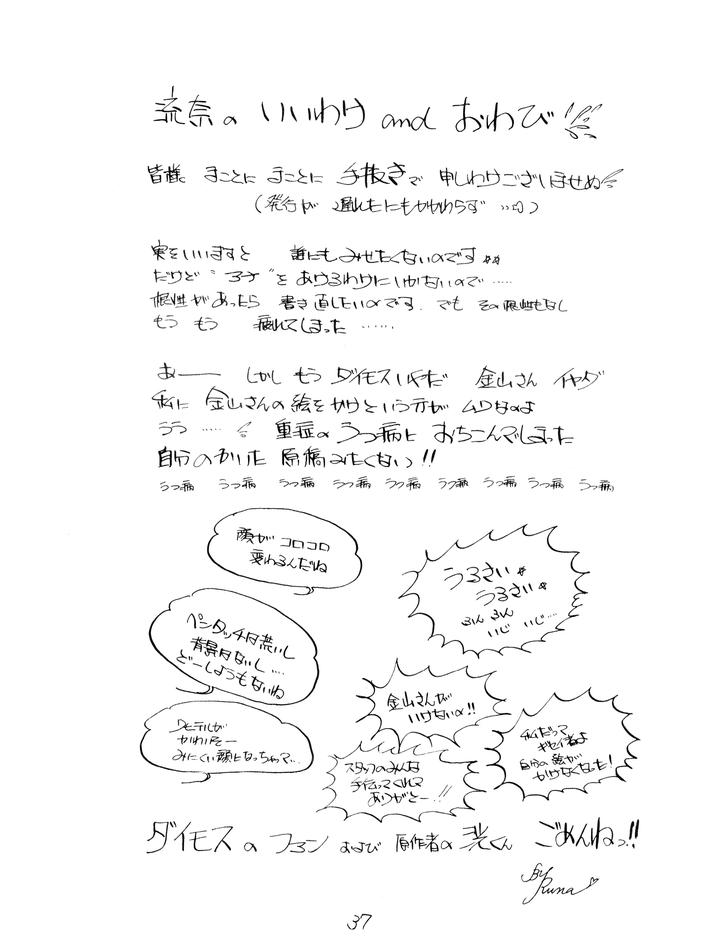 流奈の いいわけ and おわび
皆様 まことに まことに 手抜きで 申しわけございませぬ
(発行が 遅れたにもかかわらず …)
実をいいますと 誰にもみせたくないのです
だけど をあけるわけにいかないので ……
根性があったら 書き直したいのです. でも その根性もなし
もう もう 疲れてしまった ……
あ── しかし もう ダイモスいやだ 金山さん イヤダ
私に 金山さんの絵をかけという方が ムリなのよ
うう …… 重症の うつ病に おちこんでしまった
自分のかいた 原稿みたくないっ!!
うつ病 うつ病 うつ病 うつ病 うつ病 うつ病 うつ病 うつ病 うつ病
顔が コロコロ
変わるんだね
うるさい
うるさい
ふん ふん
いじ いじ…
ペンタッチは荒いし
背景はないし …
どーしようもないね
金山さんが
いけないの!!
かわいそー
みにくい顔になっちゃって…
スタッフのみんな
手伝ってくれて
ありがとー!!
私だって
ギセイ者よ
自分の絵が
かけなくなった!
ダイモスの ファン および 原作者の 洸くん ごめんねっ!!
By
Runa
37